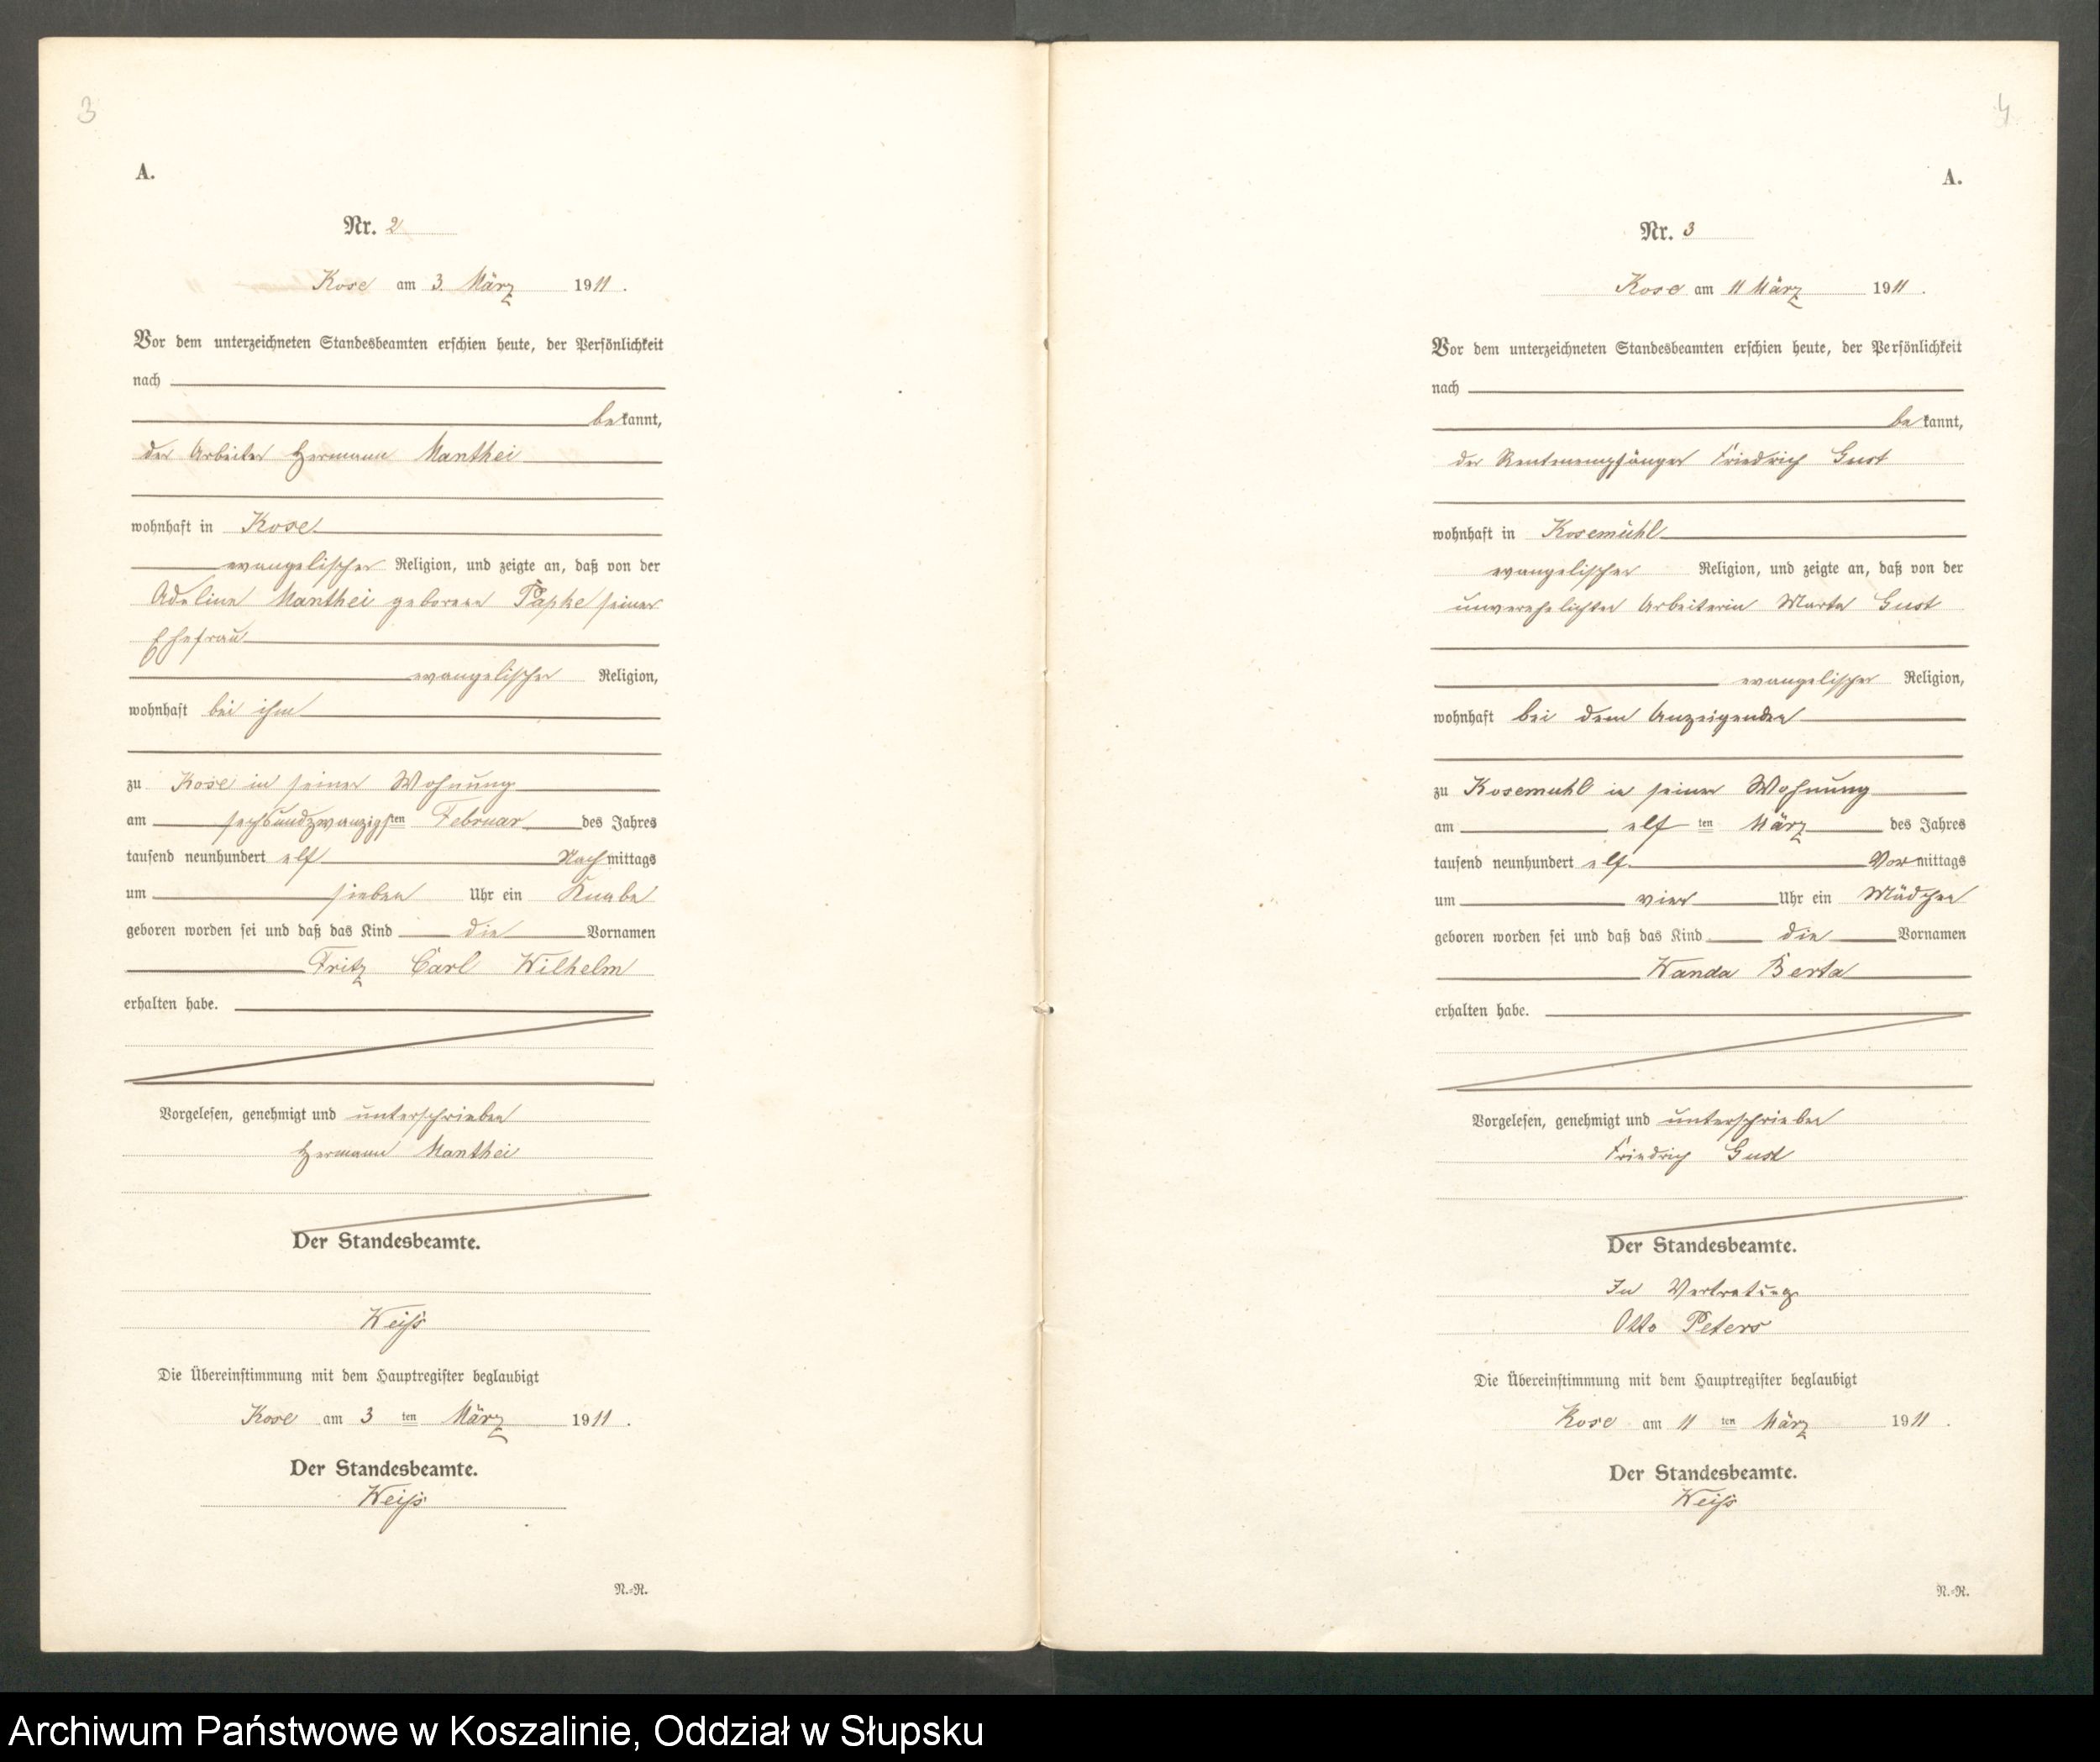 3
A.
Nr. 2
Kose am 3. März 1911.
Vor dem unterzeichneten Standesbeamten erschien heute, der Persönlichkeit
nach
bekannt,
der Arbeiter Hermann Manthei
wohnhaft in Kose
evangelischer Religion, und zeigte an, daß von der
Adeline Manthei geborene Papke seiner
Ehefrau
evangelischer Religion,
wohnhaft bei ihm
zu Kose in seiner Wohnung
am sechsundzwanzigsten Februar des Jahres
tausend neunhundert elf Nachmittags
um sieben Uhr ein Knabe
geboren worden sei und daß das Kind die Vornamen
Fritz Carl Wilhelm
erhalten habe.
Vorgelesen, genehmigt und unterschrieben
Hermann Manthei
Der Standesbeamte.
Weiß
Die Übereinstimmung mit dem Hauptregister beglaubigt
Kose am 3 ten März 1911.
Der Standesbeamte.
Weiß
N.-R.
4
A.
Nr. 3
Kose am 11 März 1911.
Vor dem unterzeichneten Standesbeamten erschien heute, der Persönlichkeit
nach
bekannt,
der Rentenempfänger Friedrich Gust
wohnhaft in Kosemühl
evangelischer Religion, und zeigte an, daß von der
unverehelichten Arbeiterin Marta Gust
evangelischer Religion,
wohnhaft bei dem Anzeigenden
zu Kosemühl in seiner Wohnung
am elf ten März des Jahres
tausend neunhundert elf Vormittags
um vier Uhr ein Mädchen
geboren worden sei und daß das Kind die Vornamen
Wanda Berta
erhalten habe.
Vorgelesen, genehmigt und unterschrieben
Friedrich Gust
Der Standesbeamte.
In Vertretung
Otto Peters
Die Übereinstimmung mit dem Hauptregister beglaubigt
Kose am 11 ten März 1911.
Der Standesbeamte.
Weiß
N.-R.
Archiwum Państwowe w Koszalinie, Oddział w Słupsku